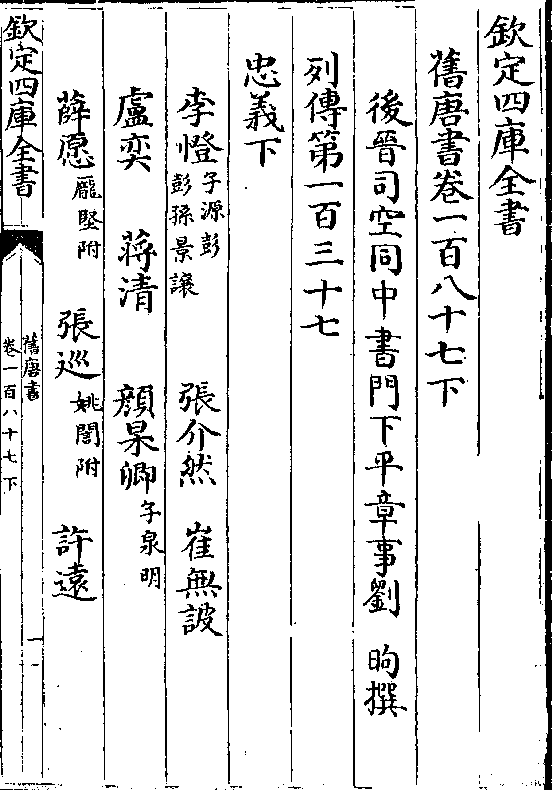 欽定四庫全書
舊唐書卷一百八十七下
後晉司空同中書門下平章事劉 昫撰
列傳第一百三十七
忠義下
李憕子源彭彭孫景讓 張介然 崔無詖
盧奕 蔣清 顏杲卿子泉明
薛愿龐堅附 張巡姚誾附 許遠
欽定四庫全書
舊唐書
卷一百八十七下
一